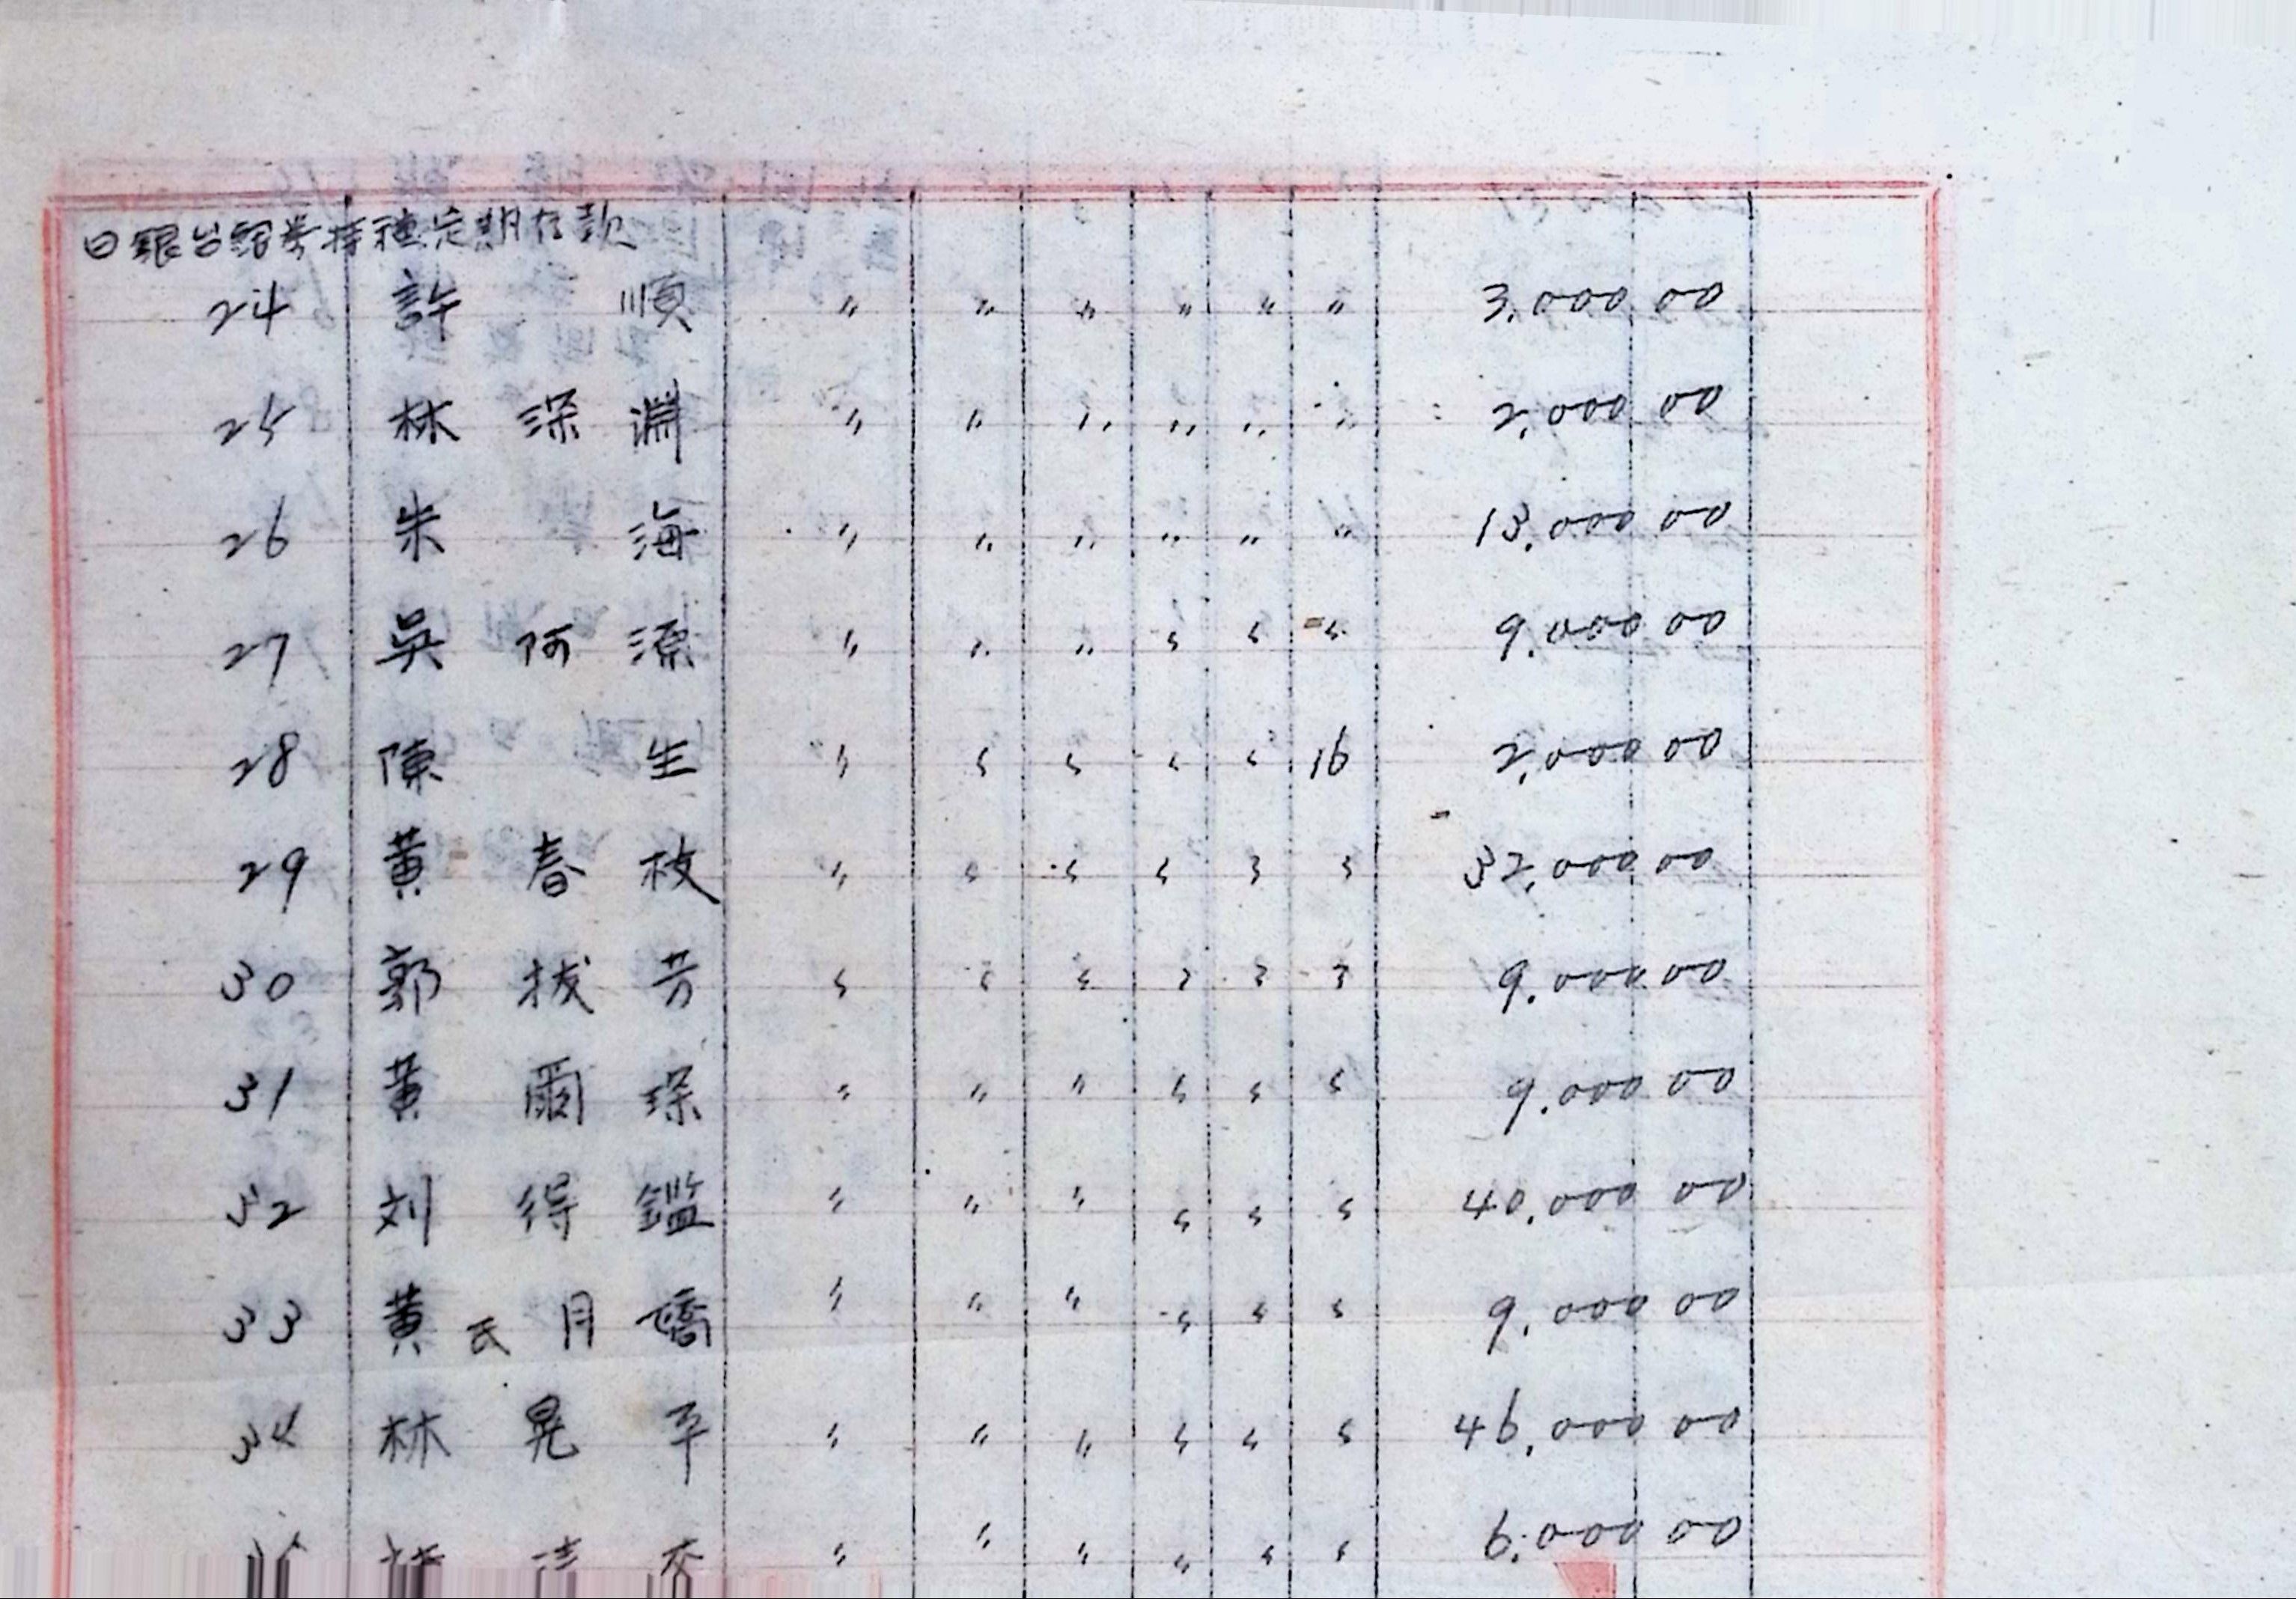 日銀台銀券特種定期存款
24 許 順 〃 〃 〃 〃 〃 〃 3,000 00
25 林 深 淵 〃 〃 〃 〃 〃 〃 2,000 00
26 朱 海 〃 〃 〃 〃 〃 〃 13,000 00
27 吳 阿 源 〃 〃 〃 〃 〃 〃 9,000 00
28 陳 生 〃 〃 〃 〃 〃 16 2,000 00
29 黃 春 枝 〃 〃 〃 〃 〃 〃 32,000 00
30 郭 拔 芳 〃 〃 〃 〃 〃 〃 9,000 00
31 黃 爾 琛 〃 〃 〃 〃 〃 〃 9,000 00
32 刘 得 鑑 〃 〃 〃 〃 〃 〃 40,000 00
33 黃 氏 月 嬌 〃 〃 〃 〃 〃 〃 9,000 00
34 林 晃 平 〃 〃 〃 〃 〃 〃 46,000 00
〃 〃 〃 〃 〃 〃 6,000 00